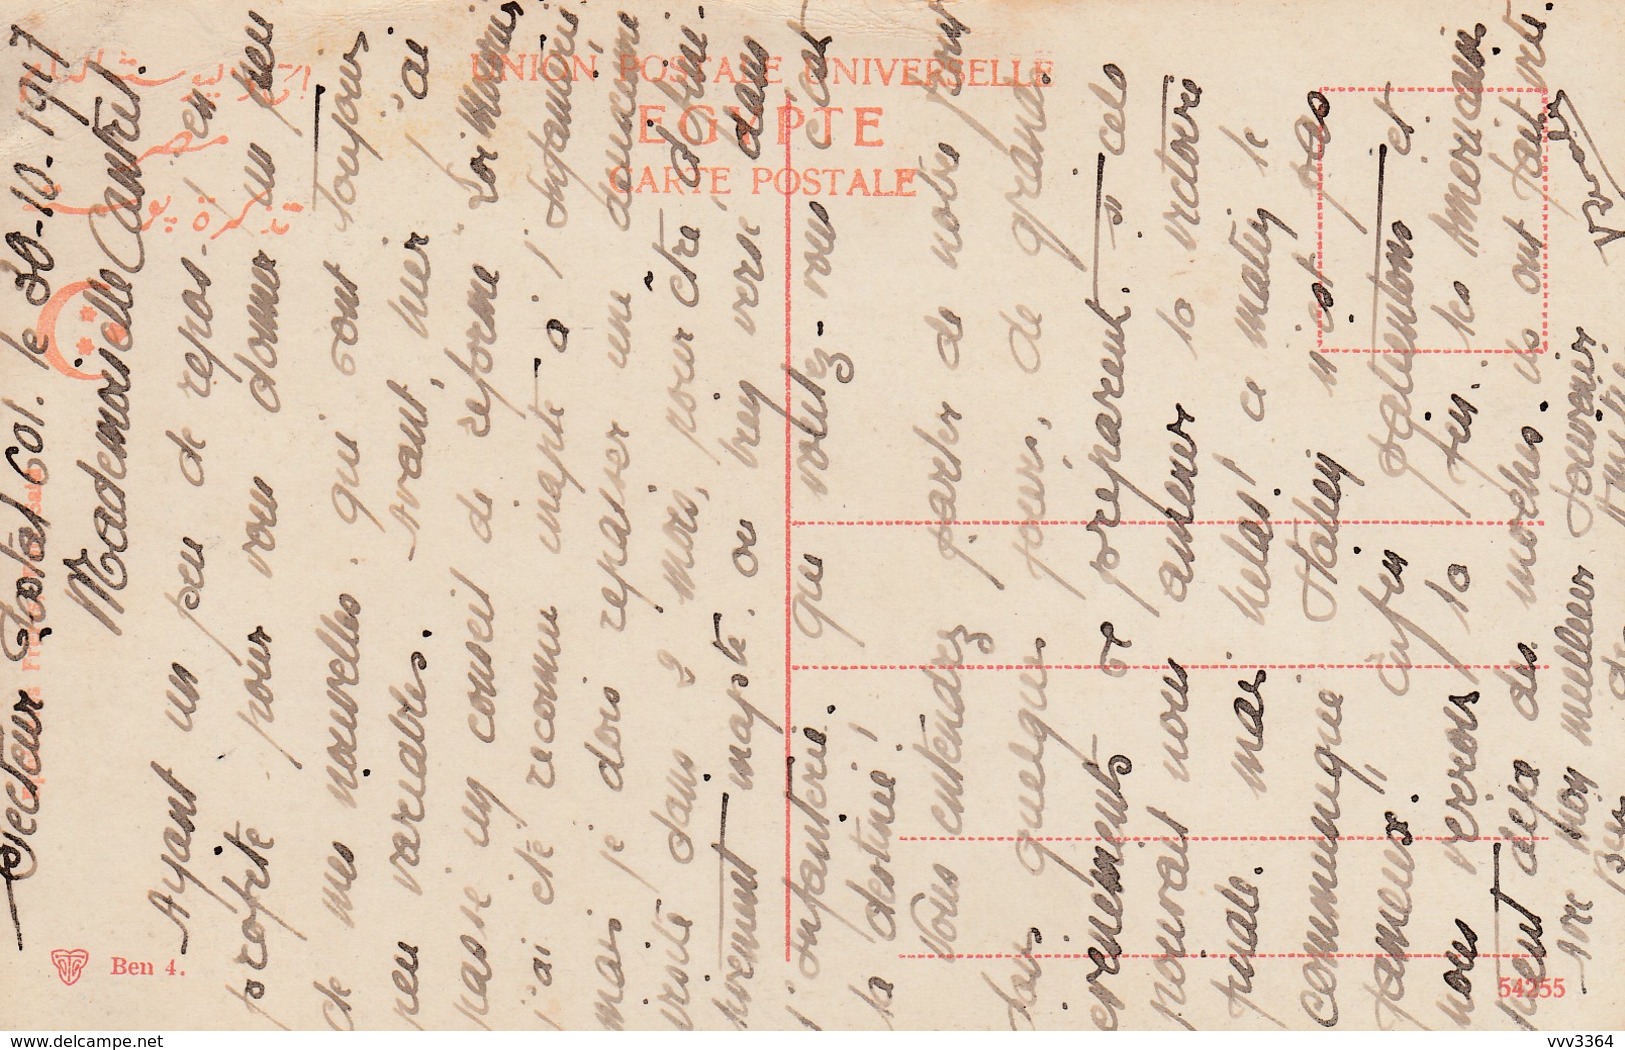 Secteur Postal 601. le 30-10-1917
Mademoiselle Cantrel.
Ayant un peu de repos. j'en
profite pour vous donner un peu
de mes nouvelles qui sont toujours
peu variables. Avant, hier j'ai
passé un conseil de réforme Loi Mourier
j'ai été reconnu inapte à l'infanterie
mais je dois repasser une deuxième
visite dans 2 mois, pour être défini-
tivement inapte. ou bien versé dans
l'infanterie. que voulez-vous c'est
la destinée!
Vous entendrez parler de notre front
sous quelques jours, de grands
évènements se préparent. si cela
pouvait nous amener la victoire
finale. mais hélas! ce matin le
communiqué Italien n'est pas
fameux. enfin patientons et
nous verrons la fin. les Américains
peut déjà des moches. ils ont fait vite.
Avec mon meilleur souvenir
Bien
UNION POSTALE UNIVERSELLE
EGYPTE
CARTE POSTALE
Ben 4.
54255
vvv3364